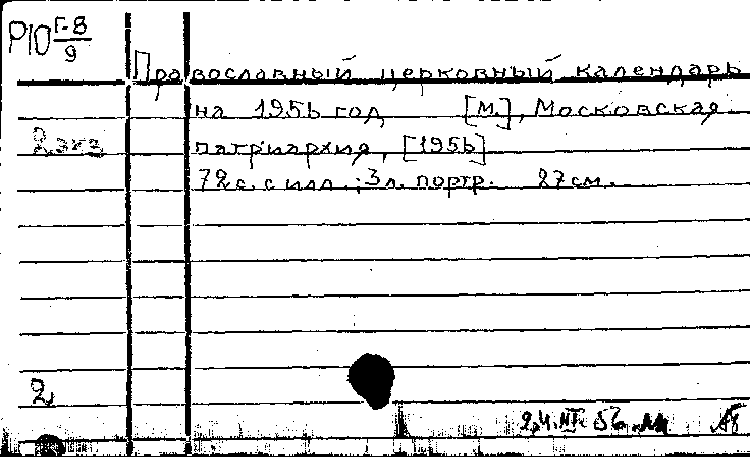 P10 Г-8/9
Православный церковный календарь
на 1956 год [М.], Московская
2 экз
патриархия, [1956]
72 с. с илл.; 3 л. портр. 27 см.
2